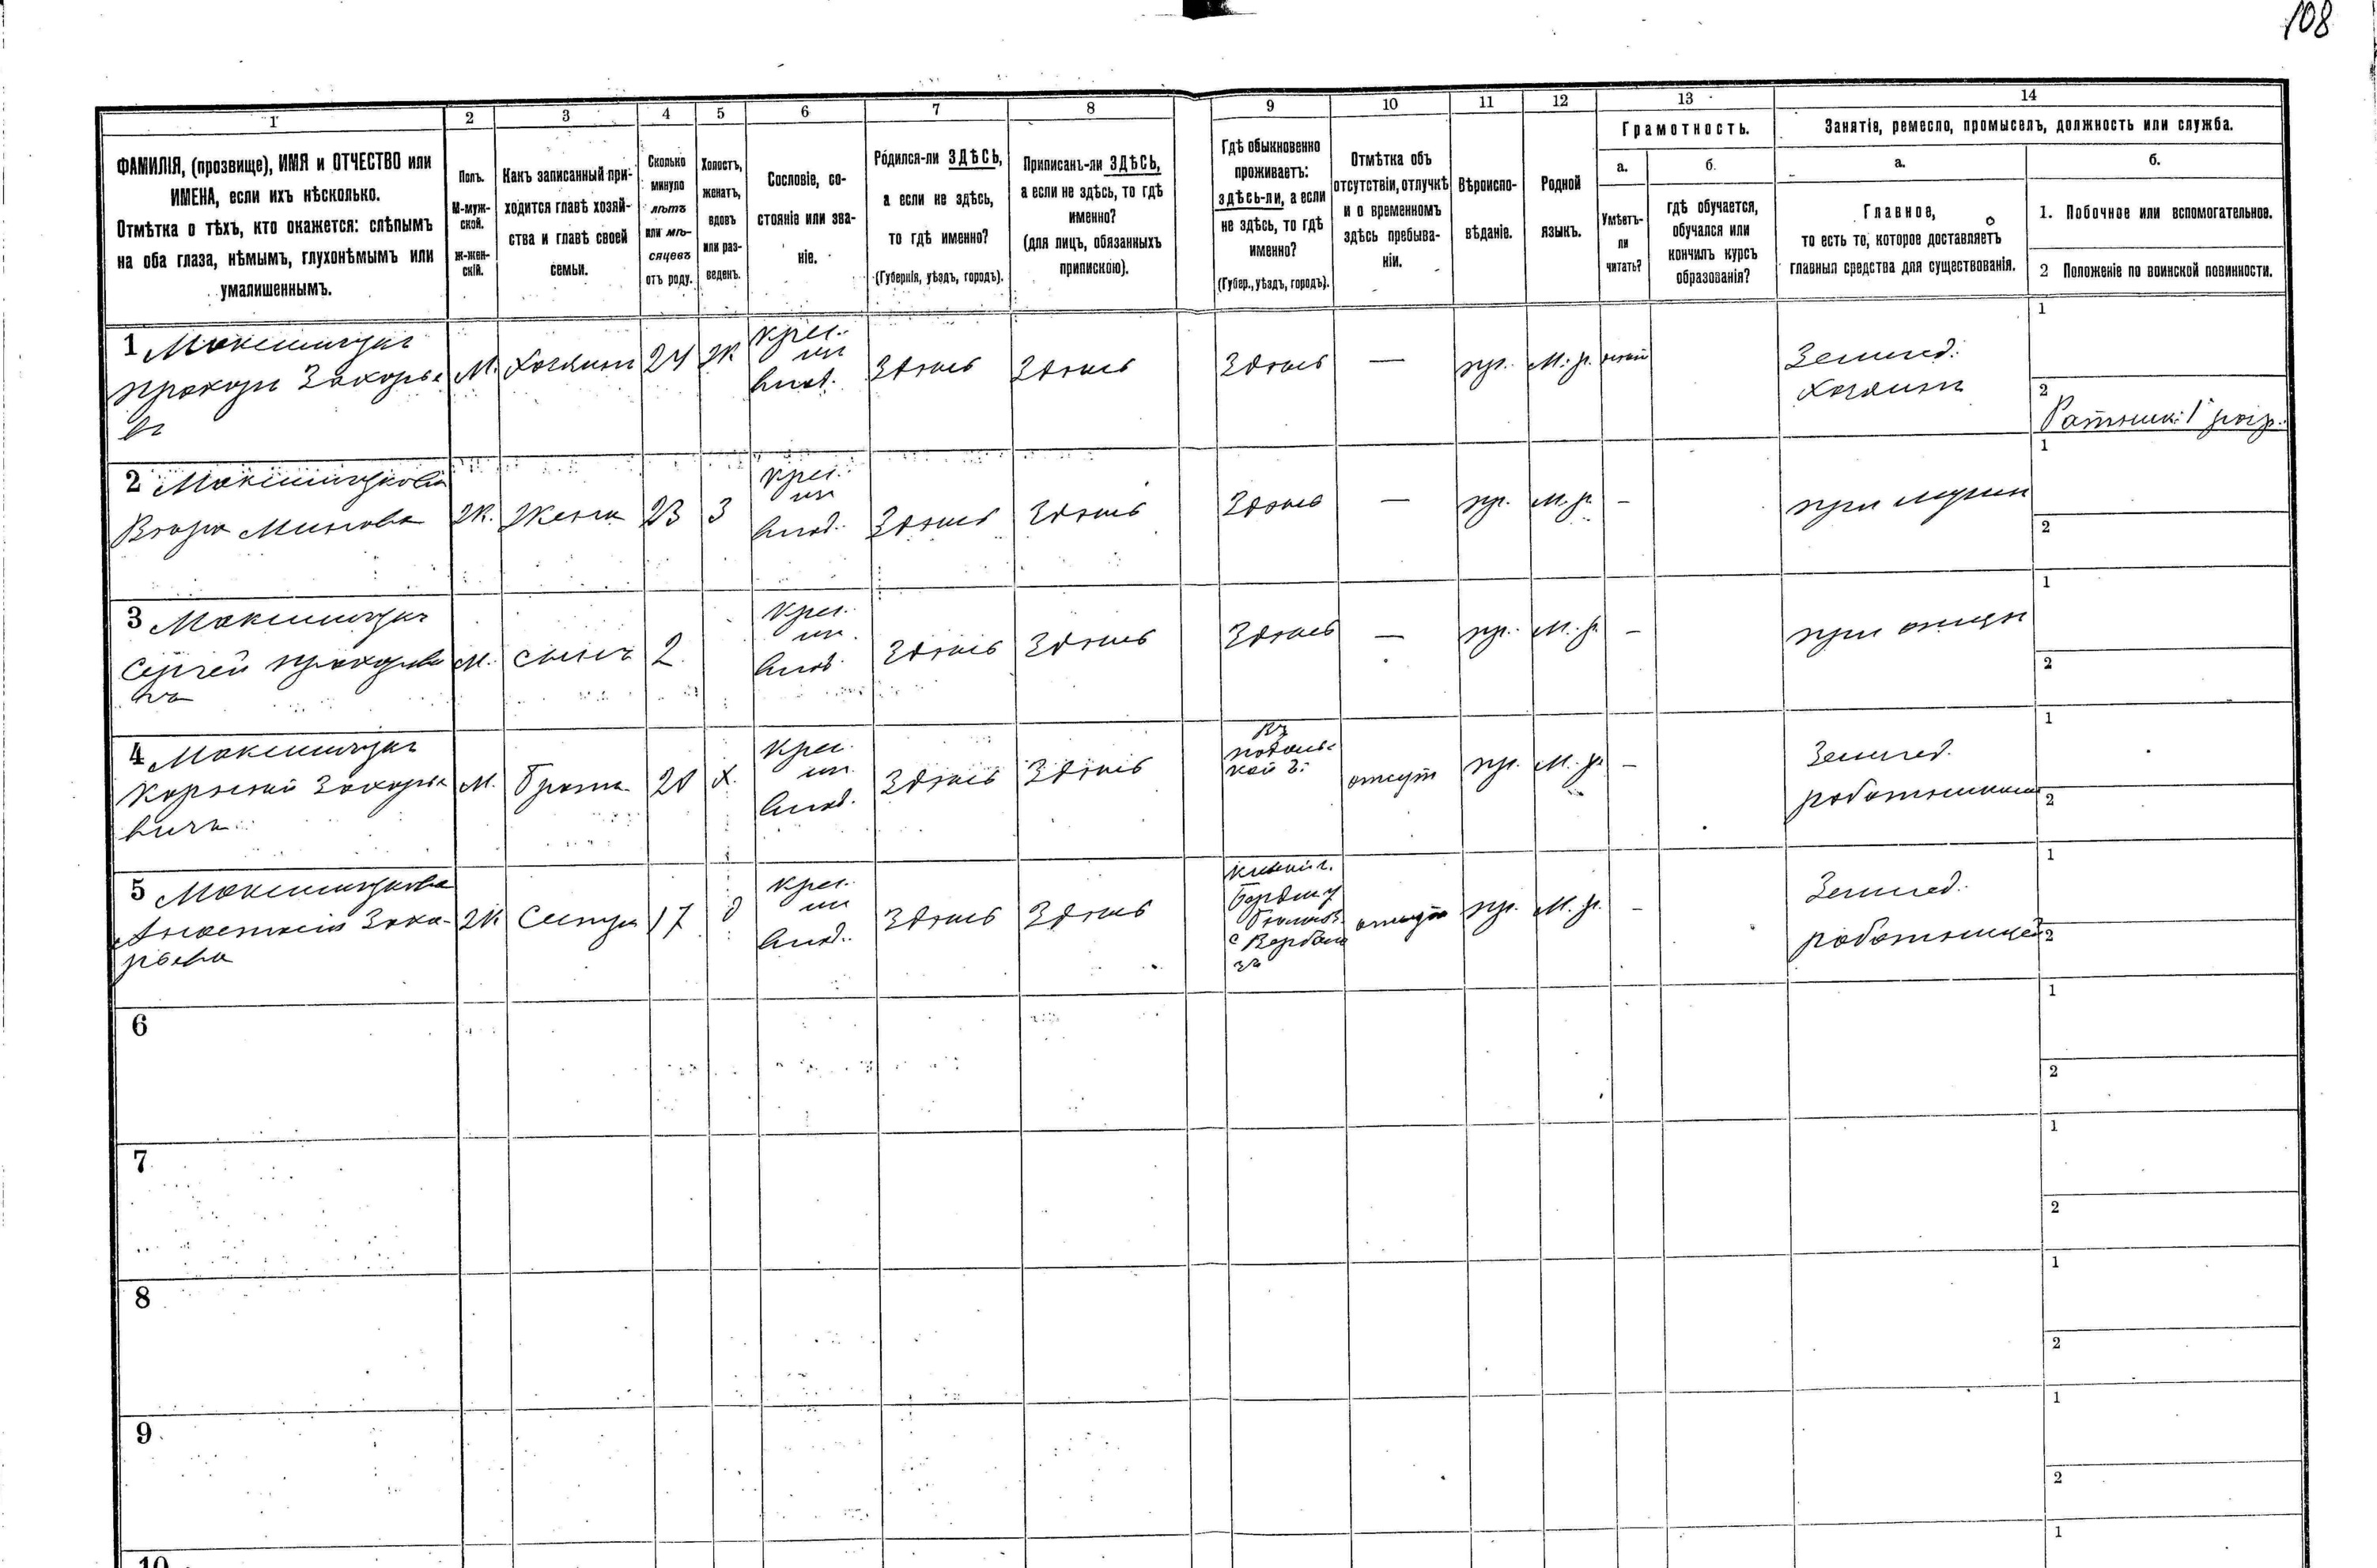 108
1 2 3 4 5 6 7 8 9 10 11 12 13 14
ФАМИЛІЯ, (прозвище), ИМЯ и ОТЧЕСТВО или
ИМЕНА, если ихъ нѣсколько.
Отмѣтка о тѣхъ, кто окажется: слѣпымъ
на оба глаза, нѣмымъ, глухонѣмымъ или
умалишеннымъ.
Полъ.
М-муж-
ской.
ж-жен-
скій.
Какъ записанный при-
ходится главѣ хозяй-
ства и главѣ своей
семьи.
Сколько
минуло
лѣтъ
или мѣ-
сяцевъ
отъ роду.
Холостъ,
женатъ,
вдовъ
или раз-
веденъ.
Сословіе, со-
стояніе или зва-
ніе.
Родился-ли ЗДѢСЬ,
а если не здѣсь,
то гдѣ именно?
(Губернія, уѣздъ, городъ).
Приписанъ-ли ЗДѢСЬ,
а если не здѣсь, то гдѣ
именно?
(для лицъ, обязанныхъ
припискою).
Гдѣ обыкновенно
проживаетъ:
здѣсь-ли, а если
не здѣсь, то гдѣ
именно?
(Губер., уѣздъ, городъ).
Отмѣтка объ
отсутствіи, отлучкѣ
и о временномъ
здѣсь пребыва-
ніи.
Вѣроиспо-
вѣданіе.
Родной
языкъ.
Грамотность.
а.
Умѣетъ-
ли
читать?
б.
гдѣ обучается,
обучался или
кончилъ курсъ
образованія?
Занятіе, ремесло, промыселъ, должность или служба.
а.
Главное,
то есть то, которое доставляетъ
главныя средства для существованія.
б.
1. Побочное или вспомогательное.
2 Положеніе по воинской повинности.
1
Захарье
М. Хозяинъ 24 Ж
крес.
влад.
Здѣсь Здѣсь Здѣсь — пр. М. р.
Землед.
Хозяинъ
1
2
Ратник: 1 разр.
2
Вѣра
Ж. Жена 23 З
крес.
влад.
Здѣсь Здѣсь Здѣсь — пр. М. р. —
при мужѣ
1
2
3
Сергѣй
М. сынъ 2
крес.
влад.
Здѣсь Здѣсь Здѣсь — пр. М. р. —
при отцѣ
1
2
4
Корнѣй Захарье
вичъ
М. Братъ 20 Х.
крес.
влад.
Здѣсь Здѣсь
Въ
подоль
кой г.
отсут пр. М. р. —
Землед.
1
2
5
Анастасія Заха-
рьева
Ж Сестра 17 д
крес.
влад.
Здѣсь Здѣсь
отсут пр. М. р. —
Землед.
работницей
1
2
6
1
2
7
1
2
8
1
2
9
1
2
10
1